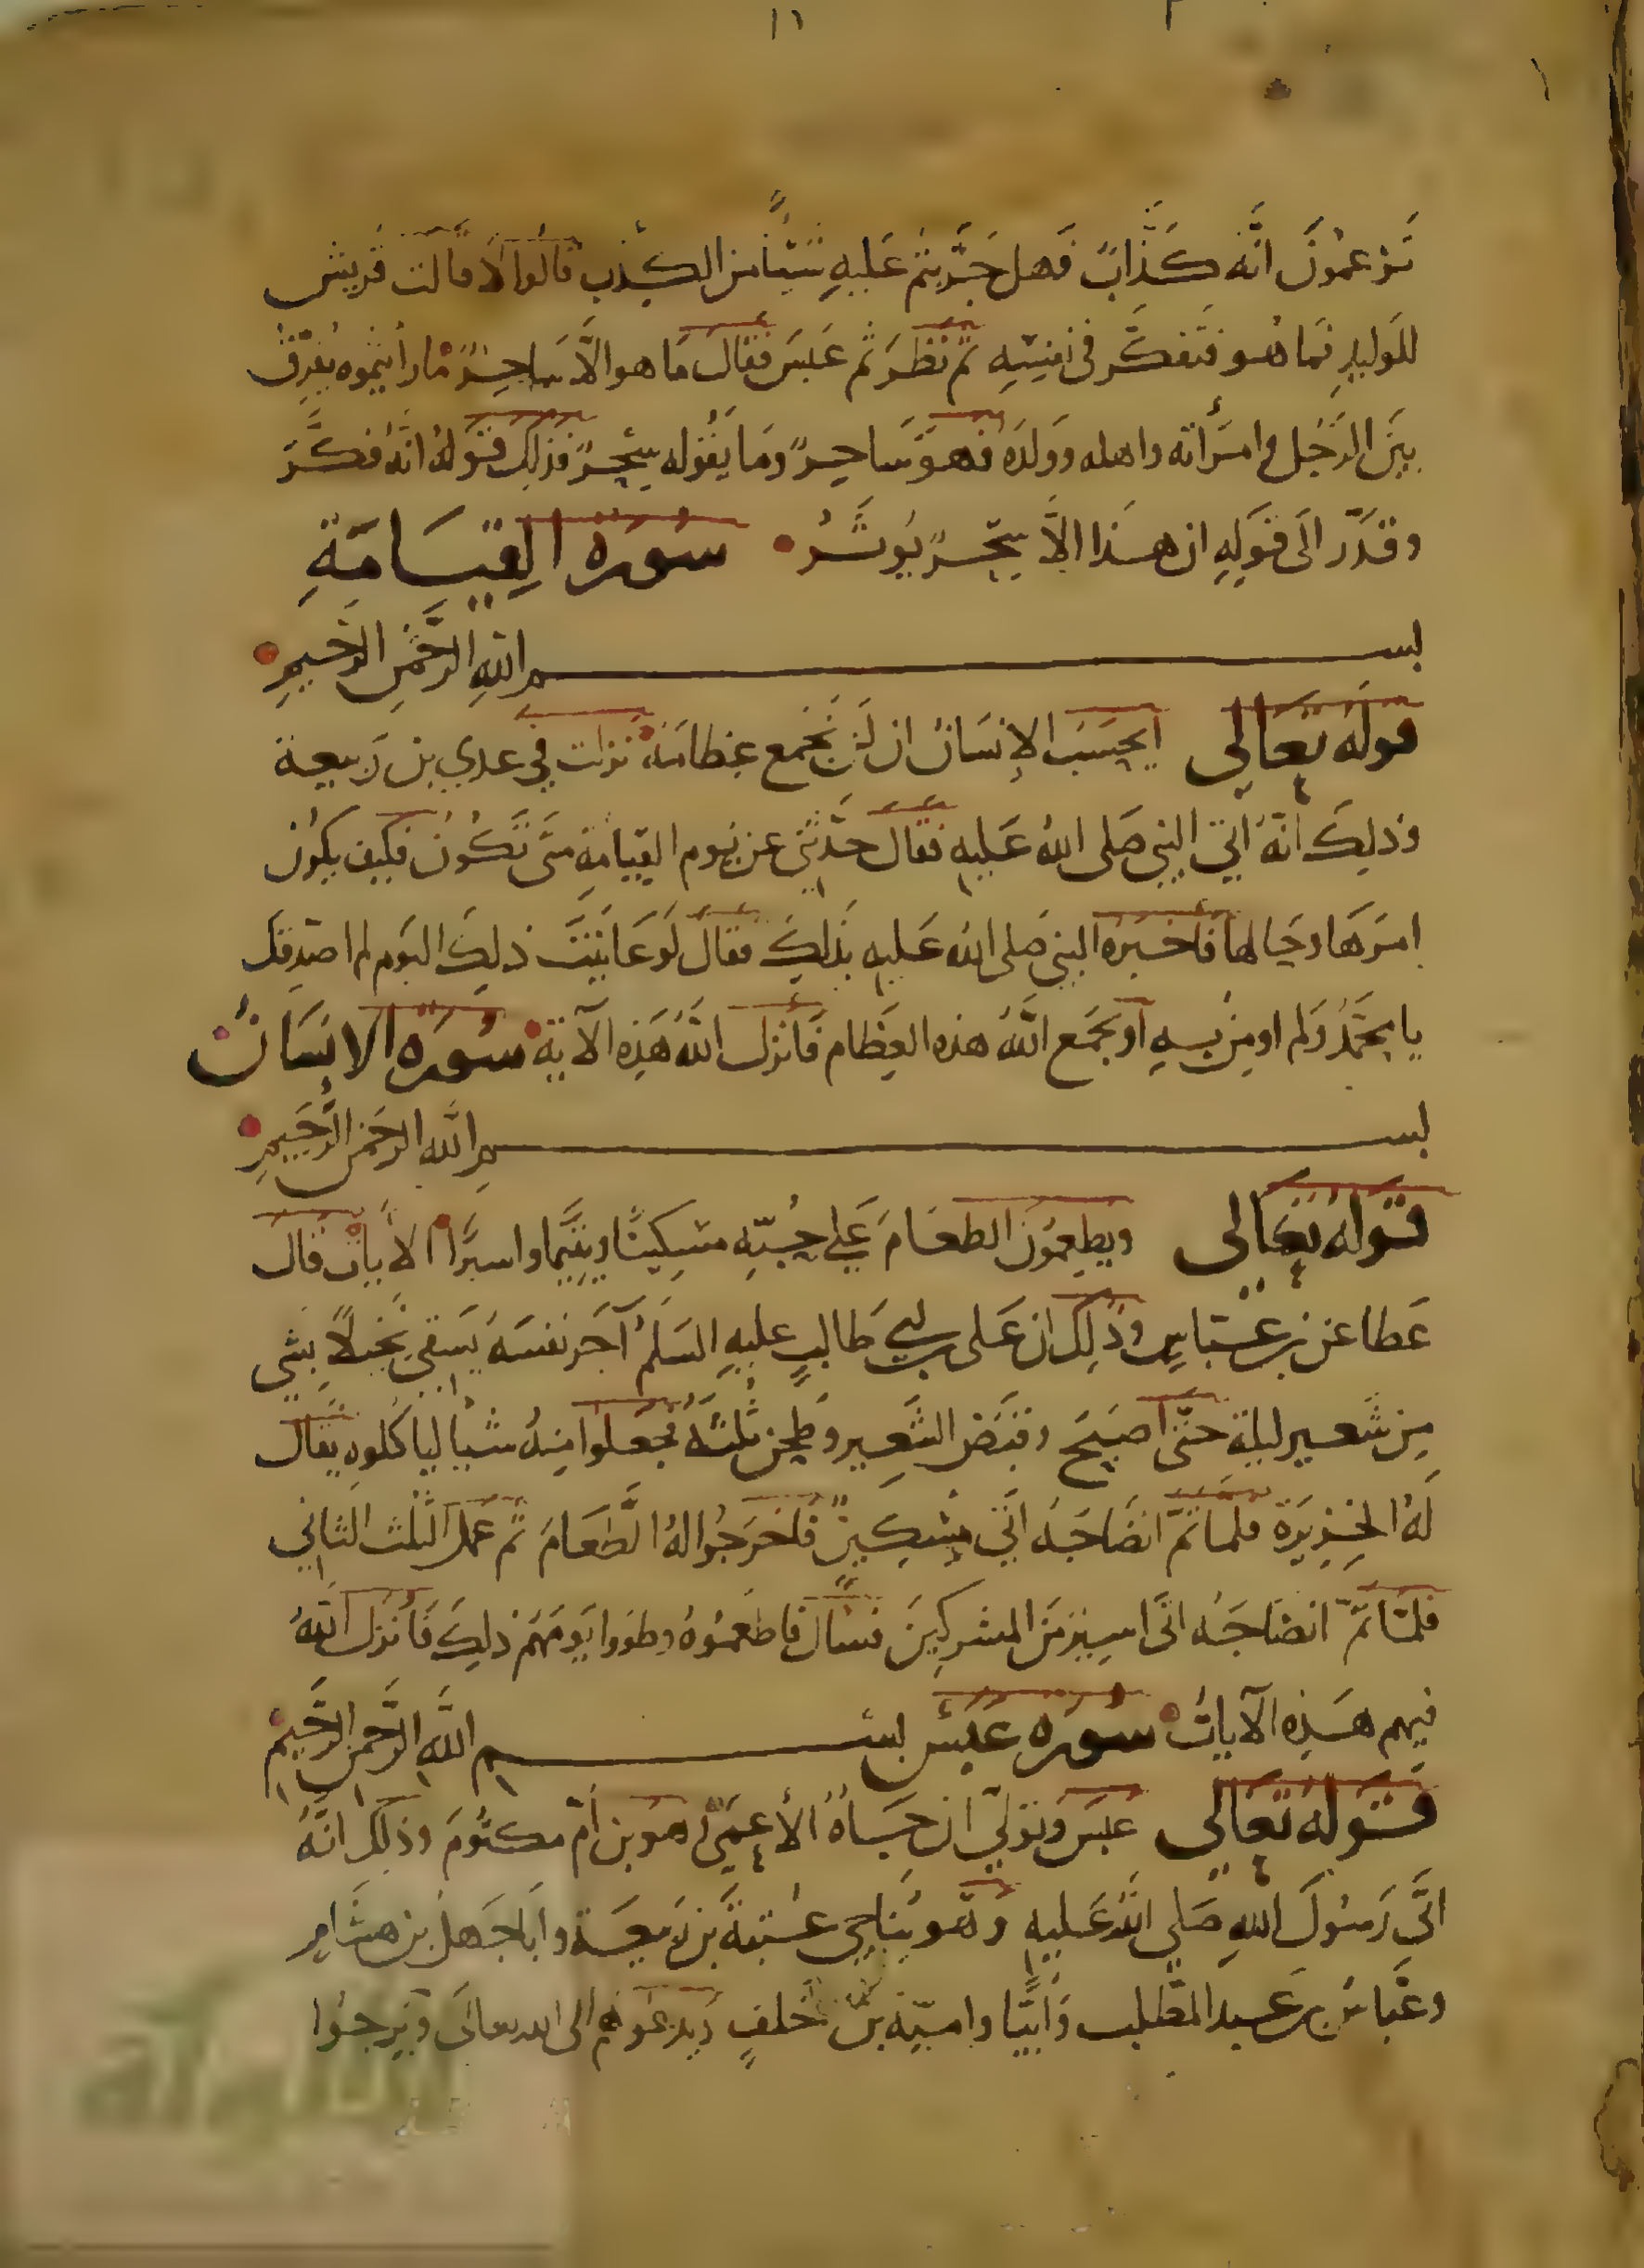 ١١
تَزعمُونَ انَّه كَذَّابٌ فَهل جَرَّبتُم عَليهِ شَيْئًا من الكذب قالوا لا قالت قريش
للوليدِ فما هُو فتفكَّر في نفسِه ثم نَظرَ ثم عَبسَ فقالَ مَا هو الَّا سَاحِرٌ مَا رأيتموه يفرّقُ
بينَ الرَجُل وامرَأته واهله وولدَه فهوَ سَاحرٌ ومَا يقوله سِحرٌ فذلك قولهُ انّهُ فكَّرَ
وقدَّر الَى قولِهِ ان هذا الَّا سِحرٌ يُوثَرُ سُورَه القِيَامَةِ
بسم اللهِ الرَّحْمٰنِ الرَّحيمِ
قولهُ تَعَالى ايحسَبُ الإنسَانُ ان لَن نَجمع عِظامَهُ نزلت في عدي بن رَبيعة
وذلِكَ انّهُ اتى النبي صَلى اللهُ عَليهِ فقال حَدّثني عن يَوم القيامَةِ متَى تَكُونُ فكيف يكُون
امرَهَا وحَالها فاخبرَه النبي صَلى الله عَليهِ بذلكَ فقالَ لَو عَاينتَ ذلِكَ اليَوم لم اصدقك
يا مُحَمَّدُ وَلم اومِن بهِ اَو يجمَع اللهُ هذه العِظام فَانزل اللهُ هَذِه الآية سُورَة الانسَانُ
بسم اللهِ الرحمٰن الرَّحيمِ
قولهُ تَعَالى ويطعِمُونَ الطعَامَ عَلى حُبّهِ مسكينًا ويتيمًا واسيرًا الآيات قال
عَطا عن بن عبَّاسٍ وذَلِكَ ان عَلى بن ابي طَالبٍ عليهِ السَلمُ آجَر نفسَهُ يَسقي نخلًا بشي
مِن شَعير ليلة حتّى اصبحَ وقبَضَ الشَّعِير وطحن ثلثهُ فجَعلوا منهُ شيا ليا كلوه يقال
لَهُ الخزيرَة فلمّا تمَّ انضَاجَهُ اتَى مسكينٌ فاخرجُوا لهُ الطَّعَامَ ثم عَمل الثلث الثاني
فلمّا تمّ انضَاجَهُ اتَى اسير منَ المشركينَ فسَال فاطعمُوهُ وطووا يَومَهُم ذلِكَ فَانزل اللهُ
فيهم هَذِه الآيَاتُ سُورَه عَبَسَ بسم اللَّهِ الرَّحمن الرَّحيم
قولهُ تَعَالى عبسَ وتولّى ان جَاهُ الأعمَى هو بن أمّ مكتُومَ وذلك انَّهُ
اتَى رَسُولَ اللهِ صَلي اللهُ عَليهِ وهُو يُناجي عُتبةَ بن رَبيعَة وابَا جَهل بن هشَام
وعبَاسُ بن عَبد المطلب وَابيّا واميّة بن خَلفٍ ويَدعُوهُم الى الله تعالَى ويَرجُوا